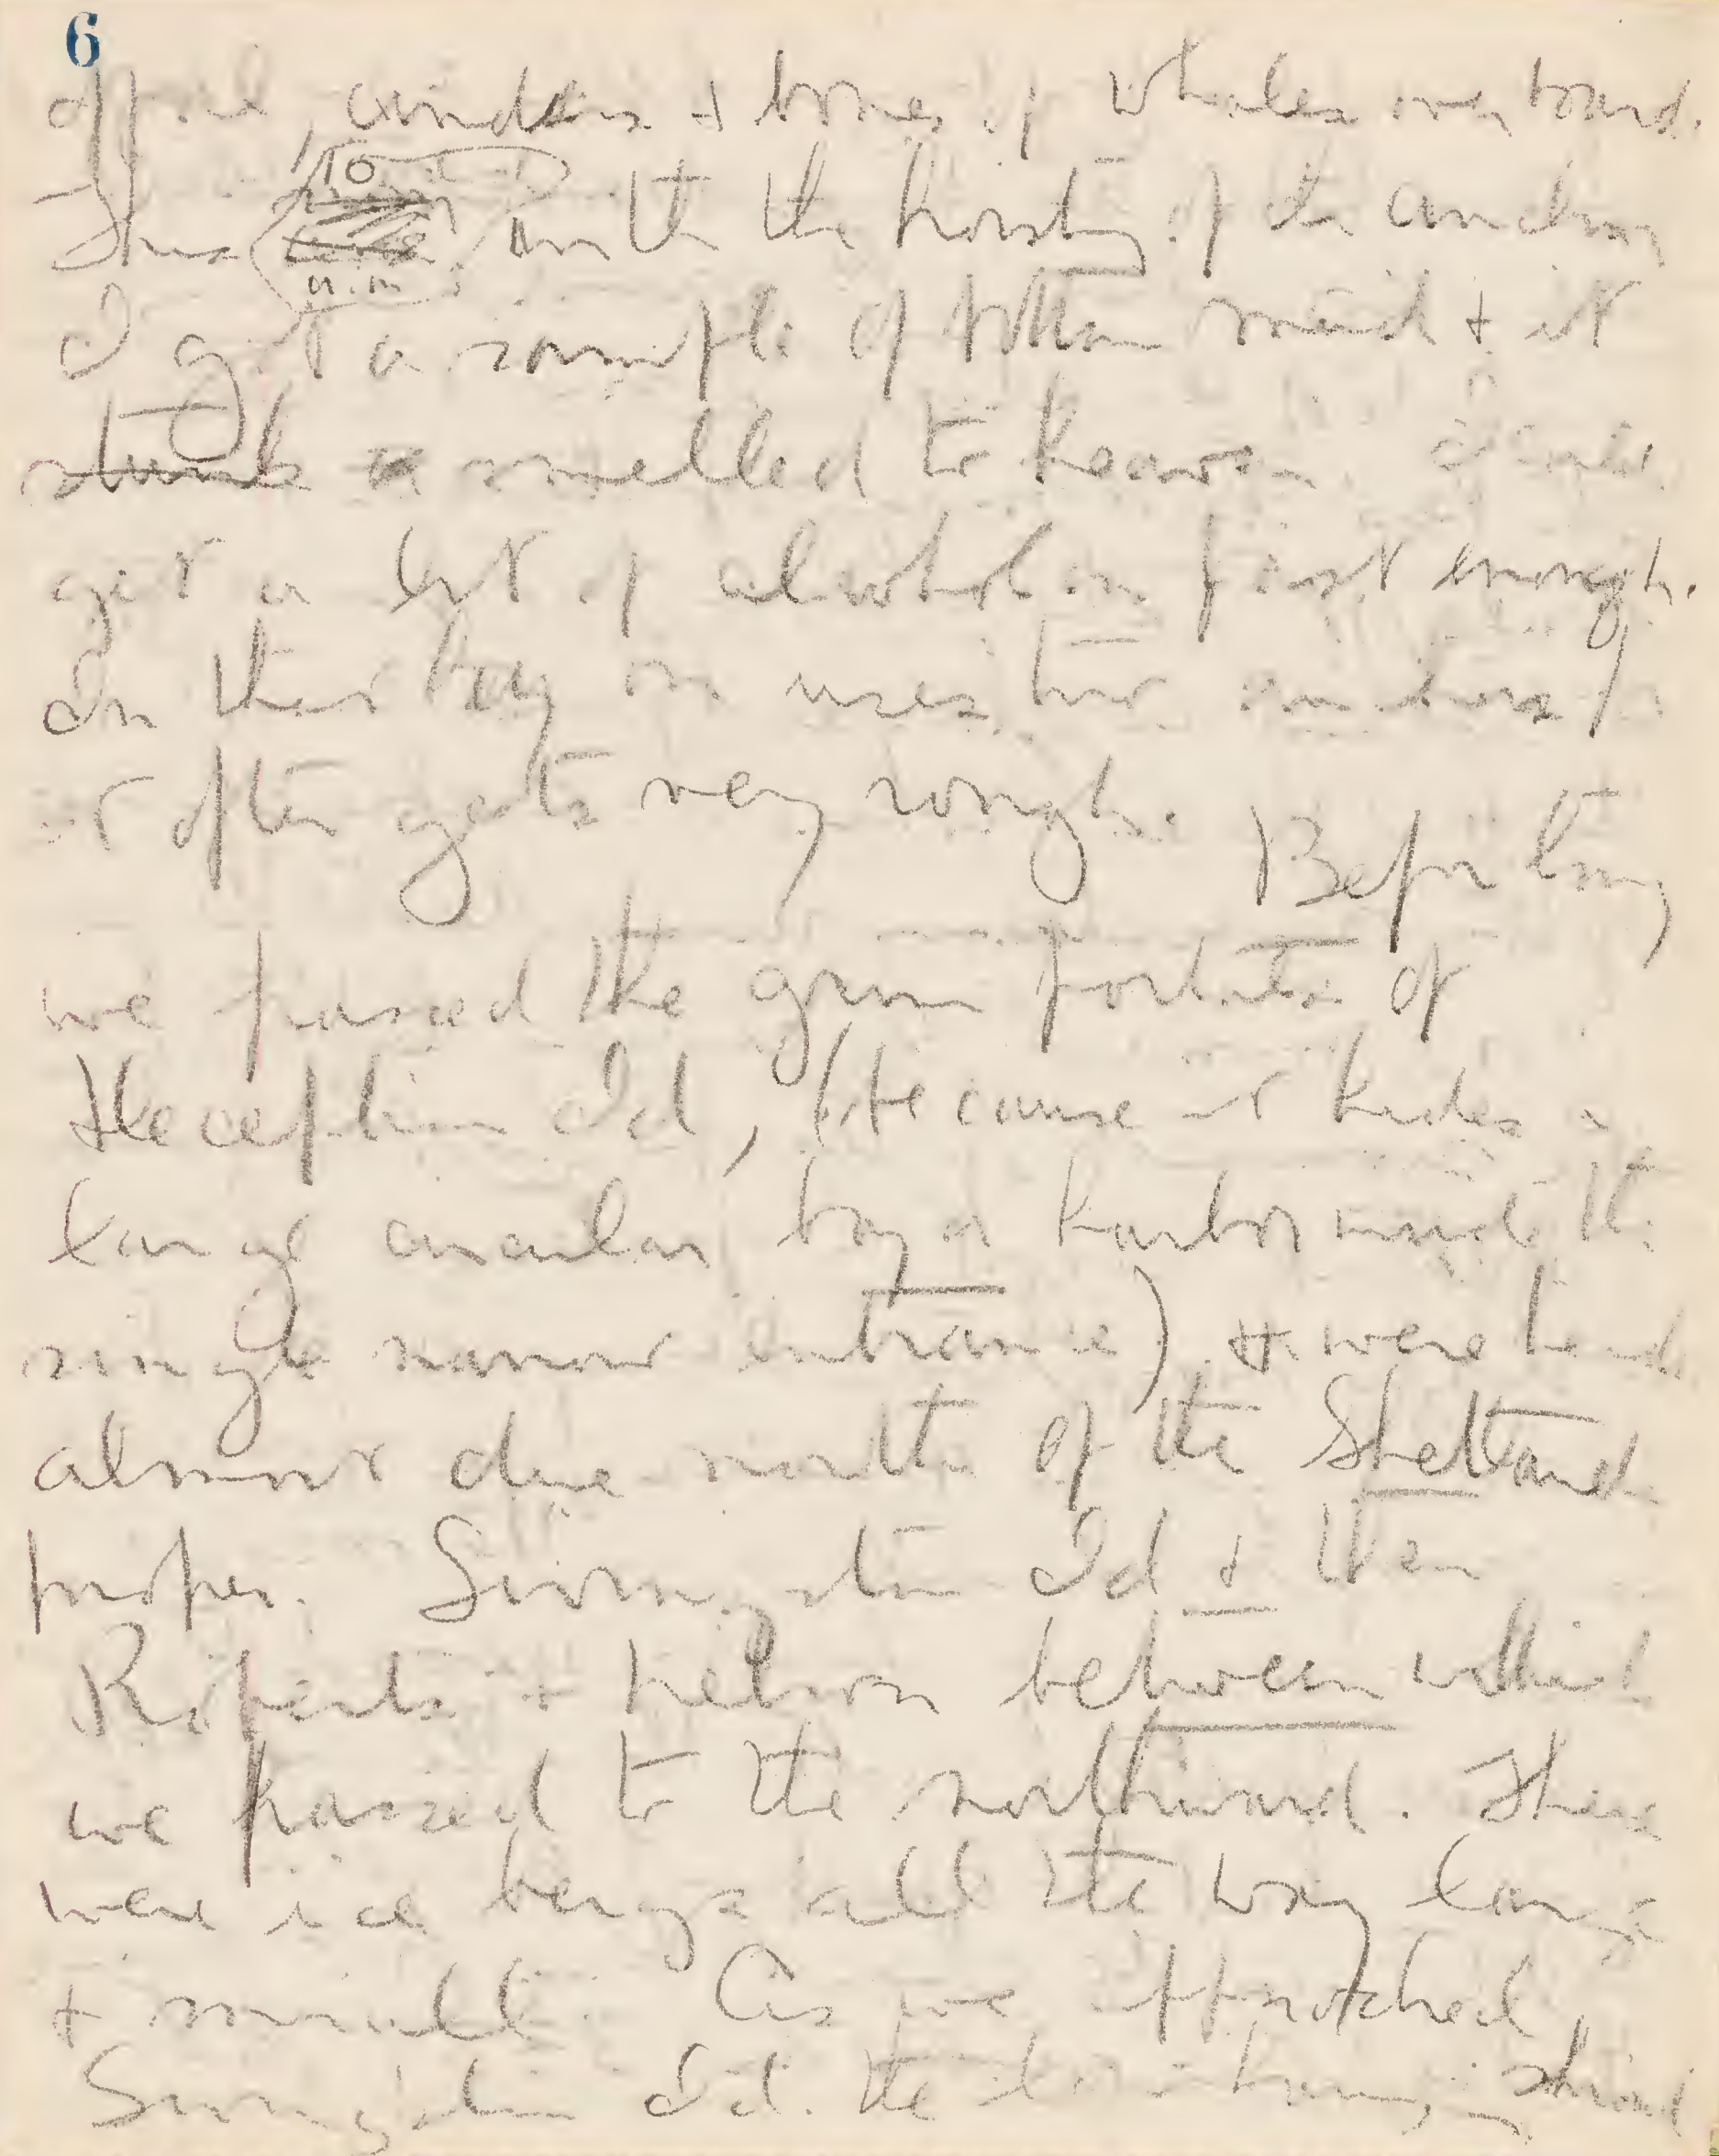 6
offal, cinders & bones of whales overboard.
Thus 10 a.m. with the hoisting of the anchor
I got a sample of bottom mud & it
stunk smelled to heaven. I could
get a lot of alcohol on fast enough.
In this bay on uses two anchors
it often gets very rough. Before long
we passed the grim portals of
Deception Id, (because it hides a
large circular bay or harbor inside the
single narrow entrance) & were headed
almost due north of the Shetlands
proper. Livingston Id & then
Roberts & Nelson between which
we passed to the northward. There
were ice bergs all the way large
& small. As we approached
Livingston Id. the